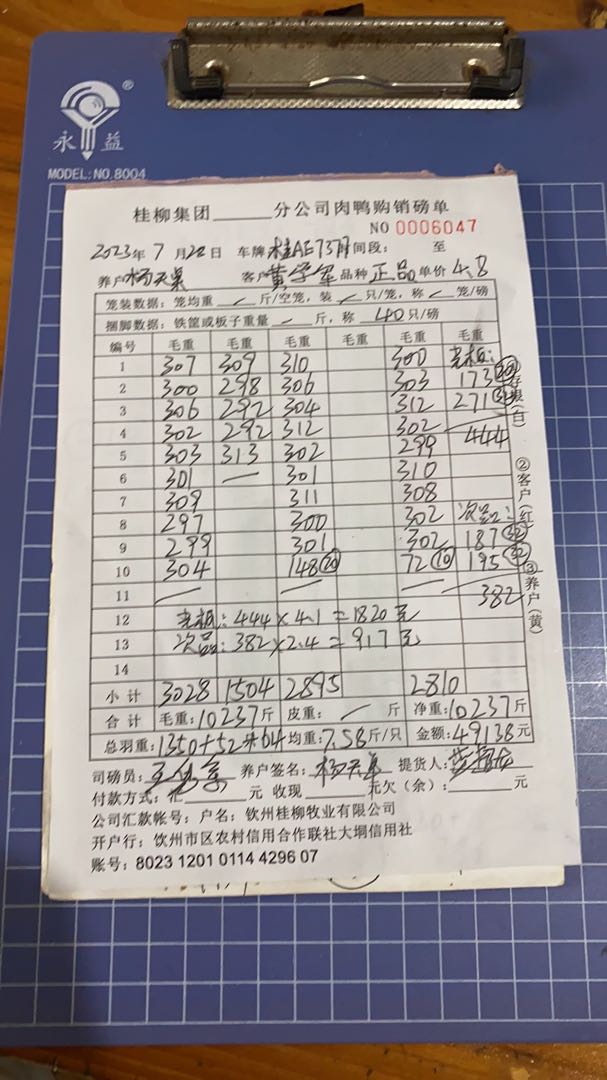 永益®
MODEL:NO.8004
桂柳集团______分公司肉鸭购销磅单
NO 0006047
2023年 7月22日 车牌 桂AE737 时间段: 至
养户 杨天 客户 黄学军 品种 正品 单价 4.8
笼装数据:笼均重 / 斤/空笼,装 / 只/笼,称 / 笼/磅
捆脚数据:铁筐或板子重量 / 斤,称 40 只/磅
编号 毛重 毛重 毛重 毛重 毛重 毛重
1 307 309 310 300 毛板:
2 300 298 306 303 173
3 306 292 304 312 271
4 302 292 312 302 444
5 303 313 302 299
6 301 — 301 310
7 309 311 308
8 297 300 302 次品:
9 299 301 302 187 32
10 304 148 20 72 10 195 32
11 — — — 382
12 毛板:444×4.1=1820元
13 次品:382×2.4=917元
14
小计 3028 1504 2895 2810
合计 毛重:10237斤 皮重: / 斤 净重:10237斤
总羽重:1350+52+64 均重:7.58斤/只 金额:49138元
司磅员: 养户签名:杨天 提货人:
付款方式:汇______元 收现______元欠(余):______元
公司汇款帐号:户名:钦州桂柳牧业有限公司
开户行:钦州市区农村信用合作联社大垌信用社
账号:8023 1201 0114 4296 07
存根(白)
②客户(红)
③养户(黄)